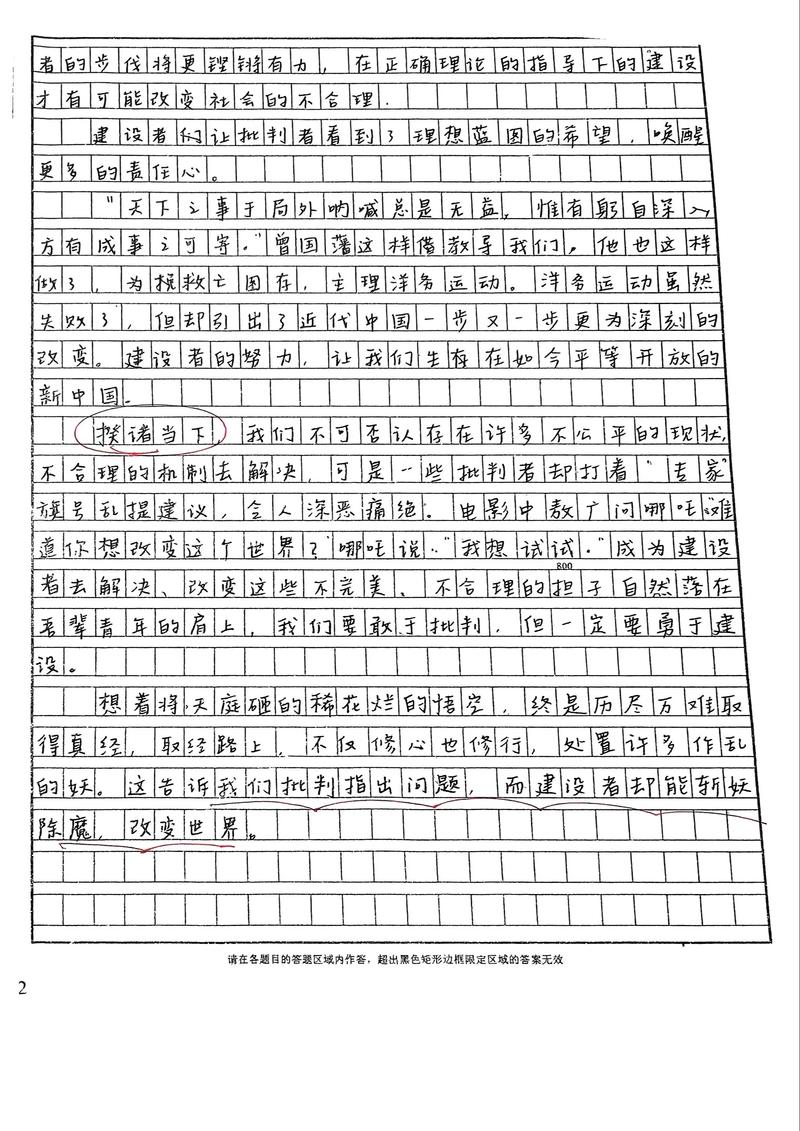 者的步伐将更铿锵有力，在正确理论的指导下的“建设
才有可能改变社会的不合理.
建设者们让批判者看到了理想蓝图的希望，唤醒
更多的责任心。
“天下之事于局外呐喊总是无益，惟有躬自深入
方有成事之可寄.”曾国藩这样借教导我们。他也这样
做了，为挽救亡图存，主理洋务运动。洋务运动虽然
失败了，但却引出了近代中国一步又一步更为深刻的
改变。建设者的努力，让我们生存在如今平等开放的
新中国。
揆诸当下，我们不可否认存在许多不公平的现状，
不合理的机制去解决，可是一些批判者却打着“专家”
旗号乱提建议，令人深恶痛绝。电影中敖广问哪吒“难
道你想改变这个世界？”哪吒说：“我想试试.”成为建设
800
者去解决、改变这些不完美、不合理的担子自然落在
吾辈青年的肩上，我们要敢于批判，但一定要勇于建
设。
想着将天庭砸的稀花烂的悟空，终是历尽万难取
得真经，取经路上，不仅修心也修行，处置许多作乱
的妖。这告诉我们批判指出问题，而建设者却能斩妖
除魔，改变世界。
请在各题目的答题区域内作答，超出黑色矩形边框限定区域的答案无效
2